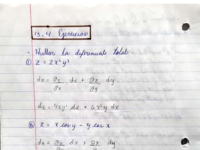 13.4 Ejercicios
- Hallar la diferencial total.
① z = 2x²y³
dz = ∂z/∂x dx + ∂z/∂y dy
dz = 4xy³ dx + 6x²y² dy
② z = x cos y - y cos x
dz = ∂z/∂x dx + ∂z/∂y dy